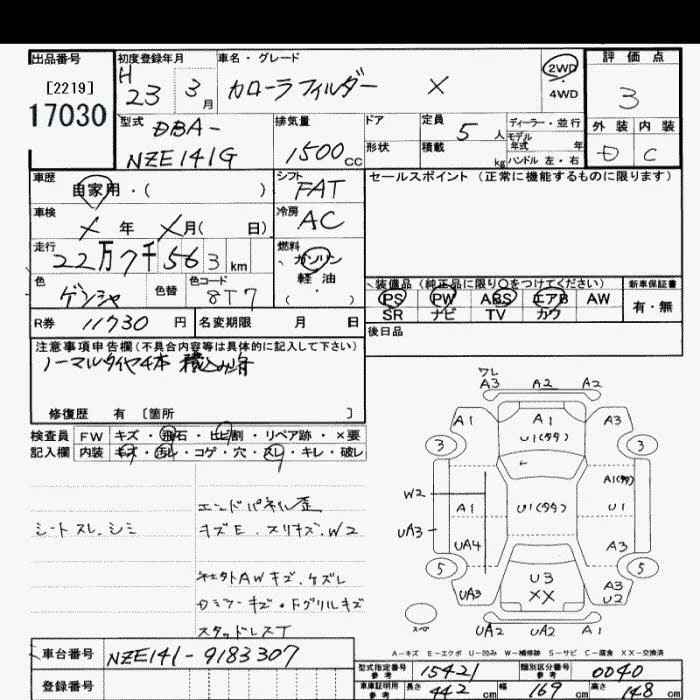 出品番号
[2219]
17030
初度登録年月
H 23 3 月
車名・グレード
カローラフィルダー X
2WD
4WD
評価点
3
外装 内装
D C
型式 DBA-
NZE141G
排気量
1500 cc
ドア
形状
定員 5 人
積載 kg
ディーラー・並行
モデル年式 年
ハンドル 左・右
車歴
自家用・( )
シフト
FAT
セールスポイント(正常に機能するものに限ります)
車検
X 年 X 月( 日)
冷房
AC
走行
22万7千563 km
燃料
ガソリン
軽油
( )
色
ゲンシャ
色替
色コード
8T7
装備品(純正品に限り○をつけてください)
PS PW ABS エアB AW
SR ナビ TV カワ
新車保証書
有・無
R券 11730 円
名変期限 月 日
後日品
注意事項申告欄(不具合内容等は具体的に記入して下さい)
ノーマルタイヤ4本 積込み済
修復歴 有 [箇所 ]
検査員
記入欄
FW キズ・飛石・ヒビ割・リペア跡・×要
内装 キズ・汚レ・コゲ・穴・スレ・キレ・破レ
エンドパネル歪
シートスレ、シミ
キズE、スリキズ、W2
ネクストAWキズ、ケズレ
Dミラーキズ・Fグリルキズ
スタッドレスT
ワレ
A3 A2 A2
A1 A1 A3
U1(タタ)
3 3
A1(タタ)
W2
A1 U1(タタ) U1
UA3
UA4 A3
5 5
UA3 U3 A3
XX U2
スペア
UA2 UA2 A1
A-キズ E-エクボ U-凹み W-補修跡 S-サビ C-腐食 XX-交換済
車台番号 NZE141-9183307
登録番号
型式指定番号 参考 15421
類別区分番号 参考 0040
車庫証明用 参考 長さ 442 cm 幅 169 cm 高さ 148 cm